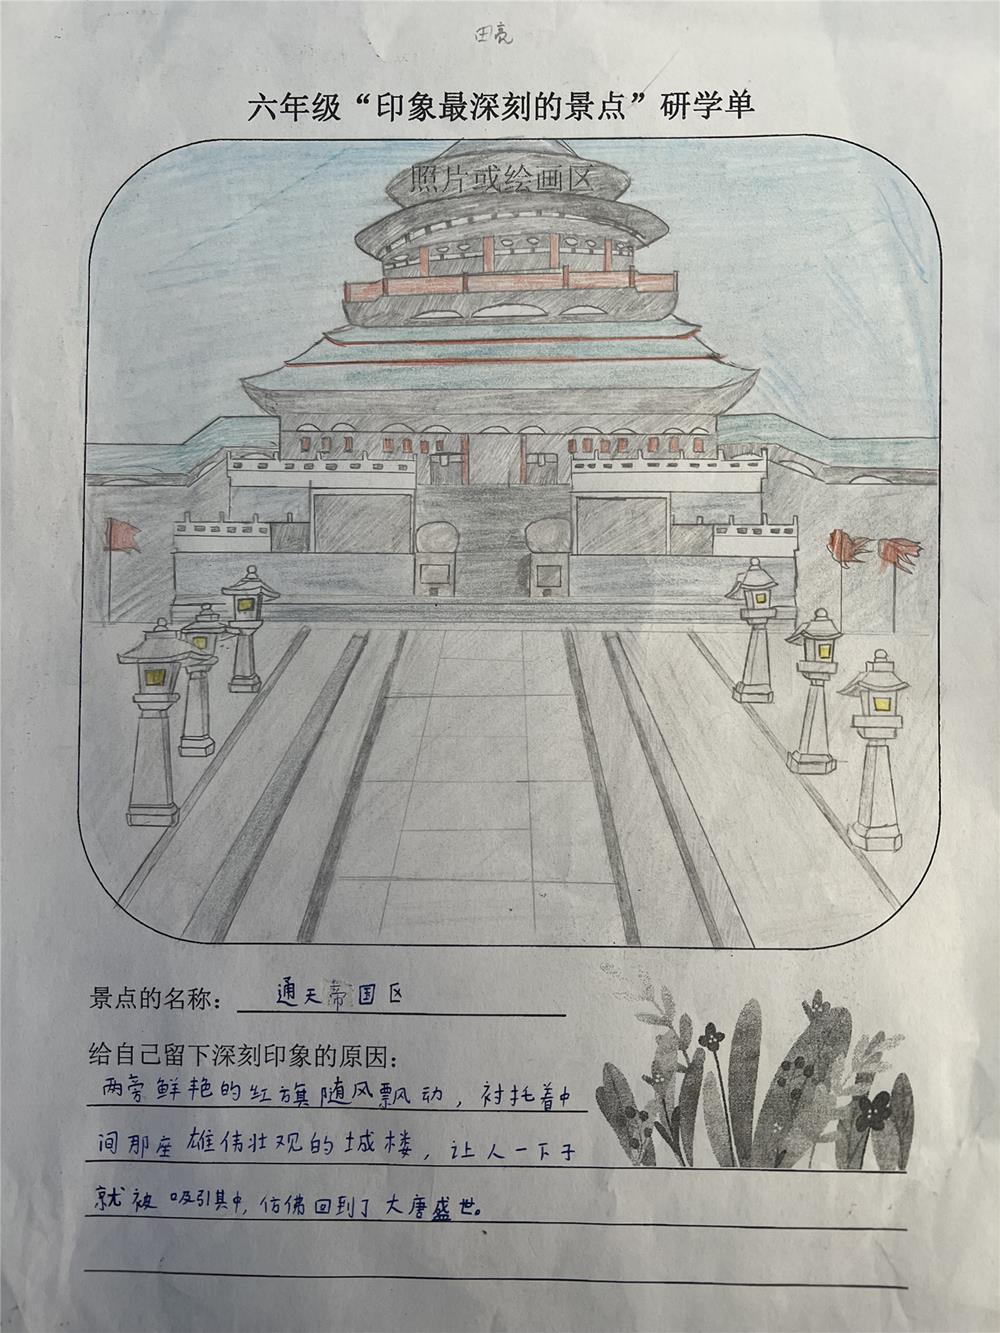 田亮
六年级“印象最深刻的景点”研学单
照片或绘画区
景点的名称：通天帝国区
给自己留下深刻印象的原因：
两旁鲜艳的红旗随风飘动，衬托着中
间那座雄伟壮观的城楼，让人一下子
就被吸引其中，仿佛回到了大唐盛世。